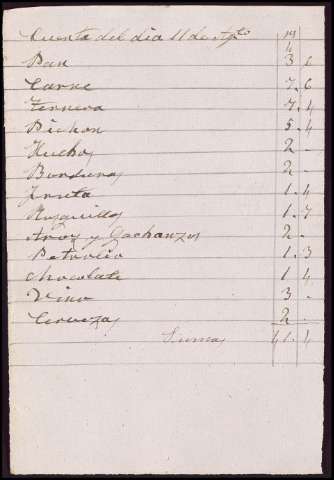 Cuenta del dia 11 de Agto
4
Pan 3 6
Carne 7. 6
Ternera 7. 4
Pichon 5. 4
Huebos 2 -
Berdura 2 -
Fruta 1. 4
Rosquillas 1. 7
Aroz y Gachanzos 2. -
Petrolio 1. 3
Chocolate 1 4
Vino 3 .
Cerveza 2 .
Suma 41. 4